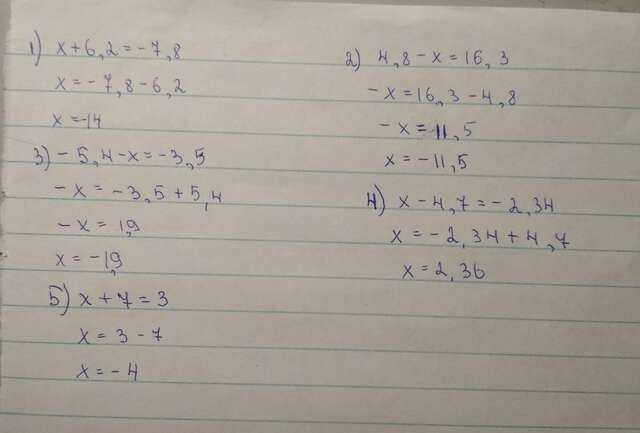 1) x+6,2=-7,8
x=-7,8-6,2
x=-14
2) 4,8-x=16,3
-x=16,3-4,8
-x=11,5
x=-11,5
3) -5,4-x=-3,5
-x=-3,5+5,4
-x=1,9
x=-1,9
4) x-4,7=-2,34
x=-2,34+4,7
x=2,36
5) x+7=3
x=3-7
x=-4